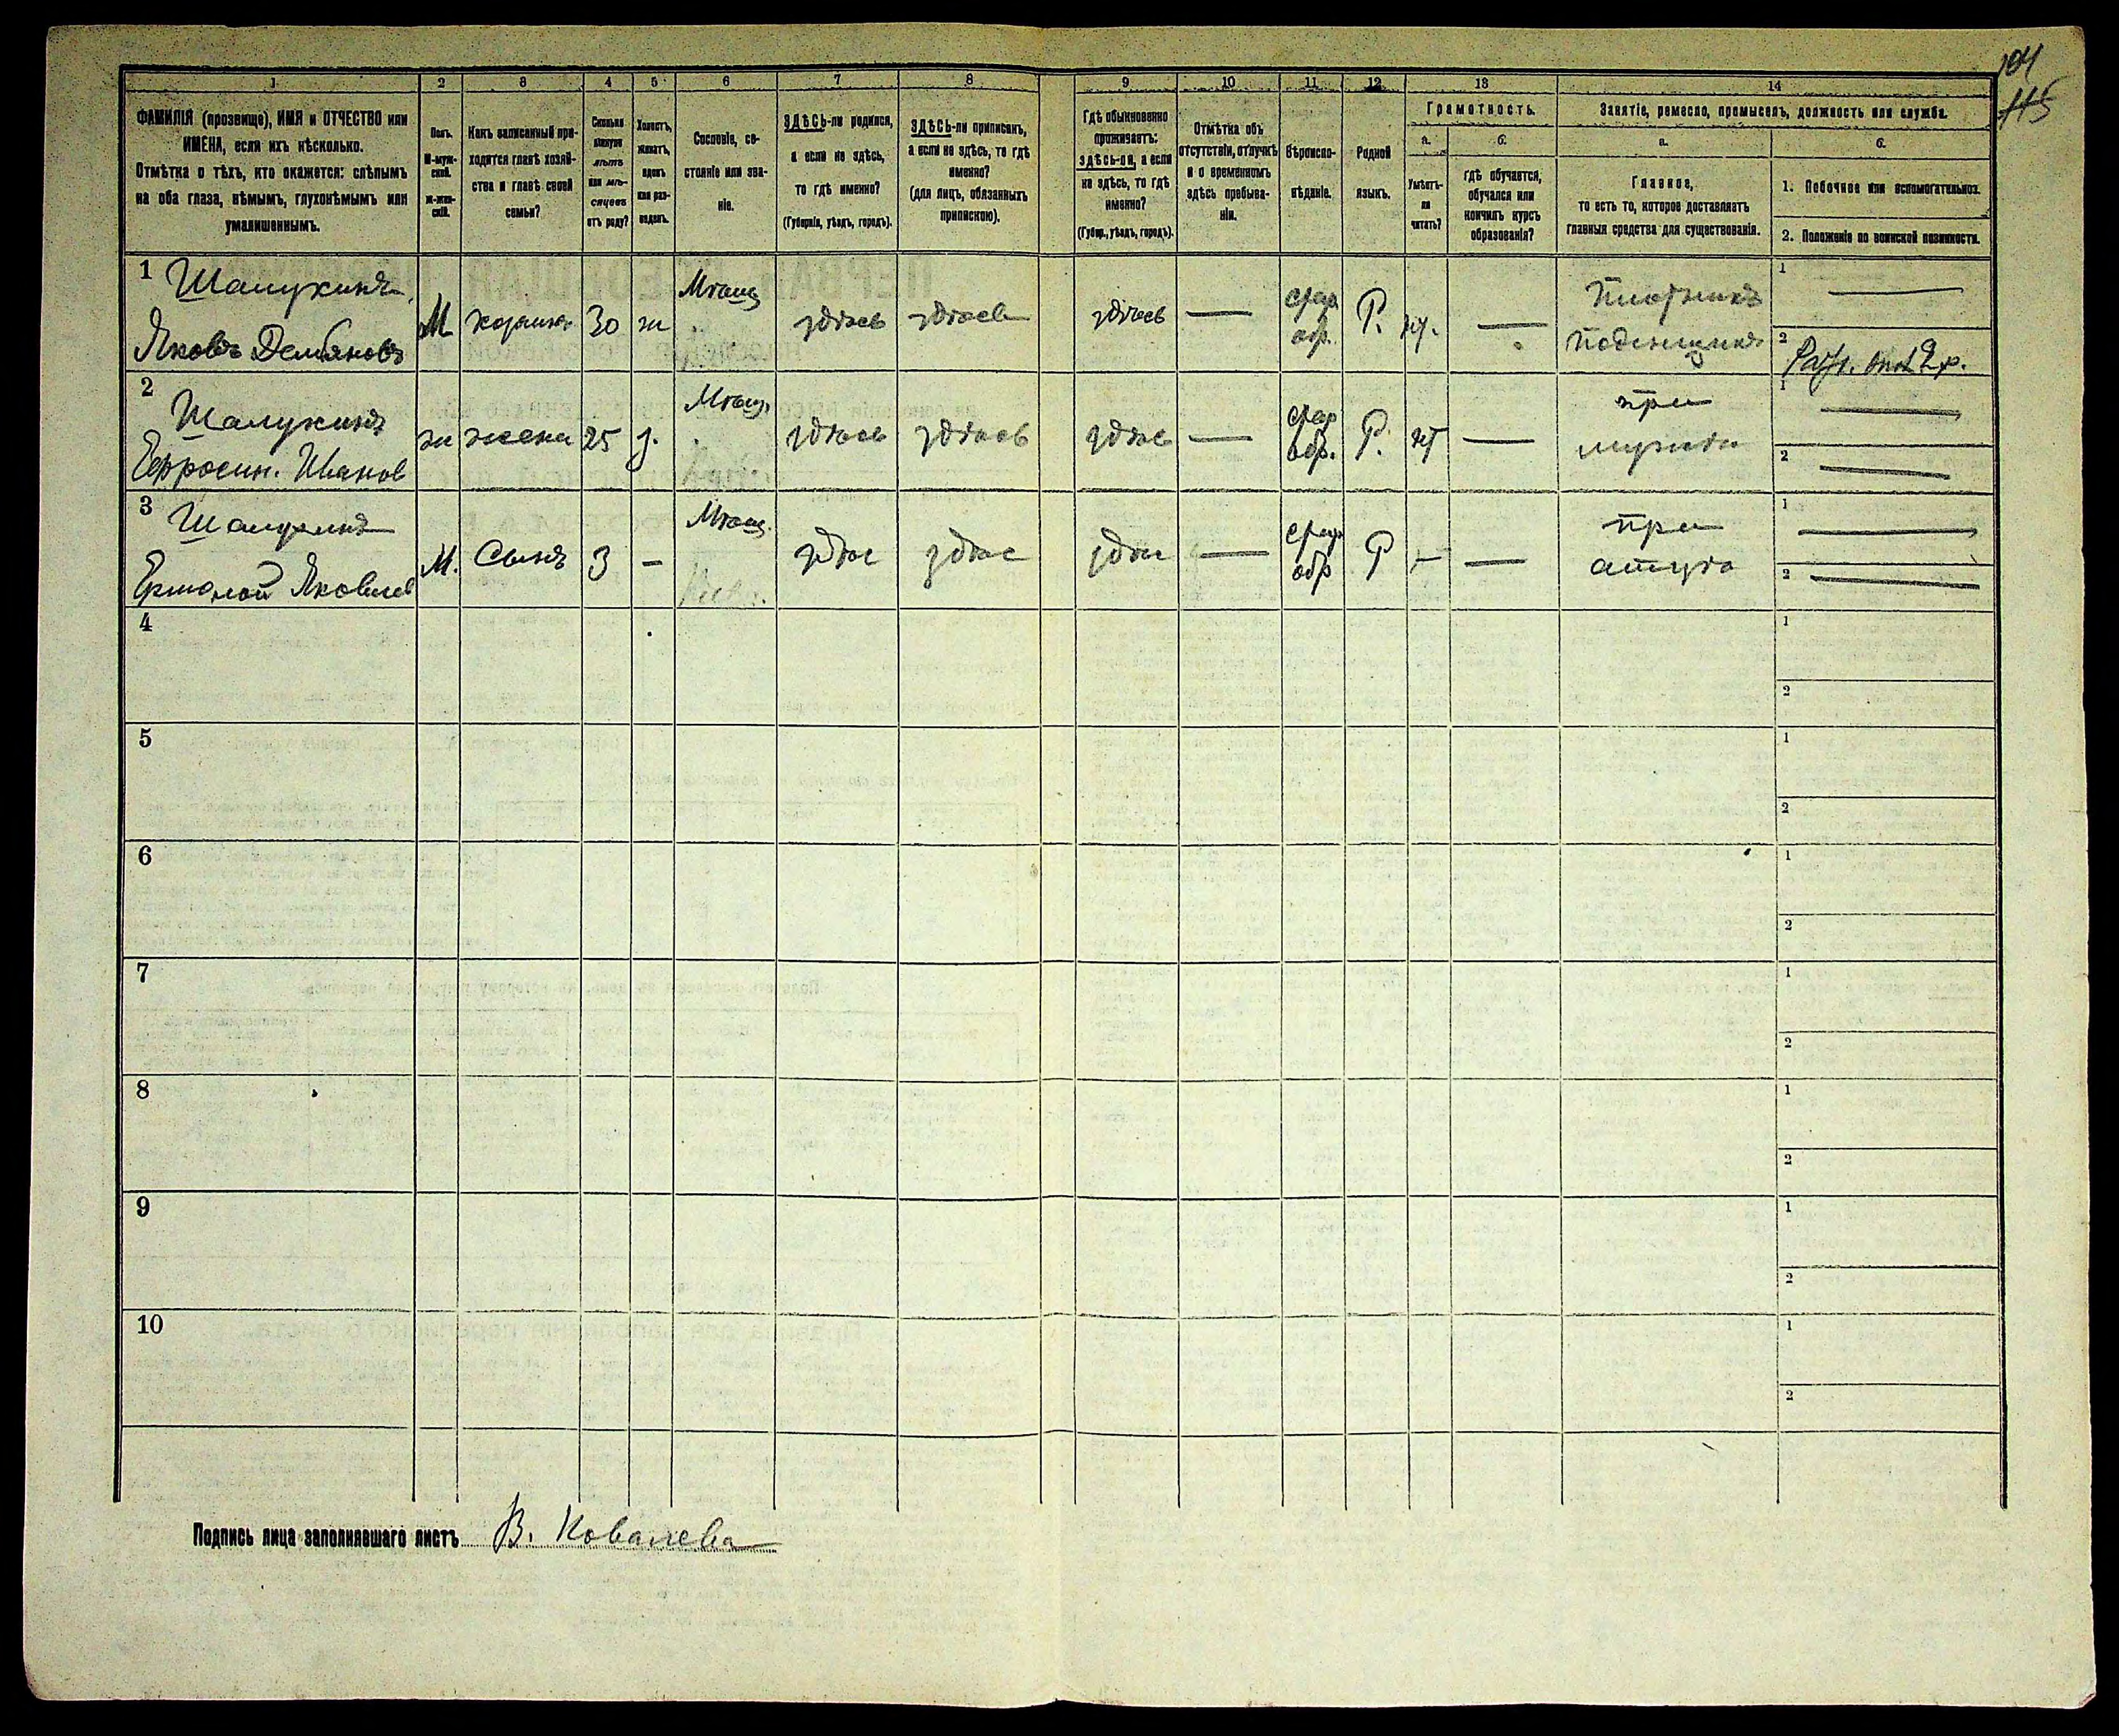 104
115
1
2
3
4
5
6
7
8
9
10
11
12
13
14
ФАМИЛІЯ (прозвище), ИМЯ и ОТЧЕСТВО или
ИМЕНА, если ихъ нѣсколько.
Отмѣтка о тѣхъ, кто окажется: слѣпымъ
на оба глаза, нѣмымъ, глухонѣмымъ или
умалишеннымъ.
Полъ.
М-муж-
ской.
ж-жен-
скій.
Какъ записанный при-
ходится главѣ хозяй-
ства и главѣ своей
семьи?
Сколько
минуло
лѣтъ
или мѣ-
сяцевъ
отъ роду?
Холостъ,
женатъ,
вдовъ
или раз-
веденъ.
Сословіе, со-
стояніе или зва-
ніе.
ЗДѢСЬ-ли родился,
а если не здѣсь,
то гдѣ именно?
(Губернія, уѣздъ, городъ).
ЗДѢСЬ-ли приписанъ,
а если не здѣсь, то гдѣ
именно?
(для лицъ, обязанныхъ
припискою).
Гдѣ обыкновенно
проживаетъ:
здѣсь-ли, а если
не здѣсь, то гдѣ
именно?
(Губер., уѣздъ, городъ).
Отмѣтка объ
отсутствіи, отлучкѣ
и о временномъ
здѣсь пребыва-
ніи.
Вѣроиспо-
вѣданіе.
Родной
языкъ.
Грамотность.
а.
Умѣетъ-
ли
читать?
б.
гдѣ обучается,
обучался или
кончилъ курсъ
образованія?
Занятіе, ремесло, промыселъ, должность или служба.
а.
Главное,
то есть то, которое доставляетъ
главныя средства для существованія.
б.
1. Побочное или вспомогательное.
2. Положеніе по воинской повинности.
1 Шалукинъ
Яковъ Демьяновъ
М хозяинъ 30 ж
Мѣщ.
здѣсь здѣсь здѣсь —
стар.
обр.
Р. нт. —
Плотникъ
поденщикъ
1 —
2
2 Шалукина
Ефросин. Иванов
ж жена 25 з.
Мѣщ.
здѣсь здѣсь здѣс —
стар
обр.
Р. нт —
при
мужѣ
1 —
2 —
3 Шалукинъ
Ермолай Яковлев
М. Сынъ 3 —
Мѣщ.
здѣс здѣс здѣс —
стар
обр
Р — —
при
отцѣ
1 —
2 —
4
1
2
5
1
2
6
1
2
7
1
2
8
1
2
9
1
2
10
1
2
Подпись лица заполнявшаго листъ В. Ковалева